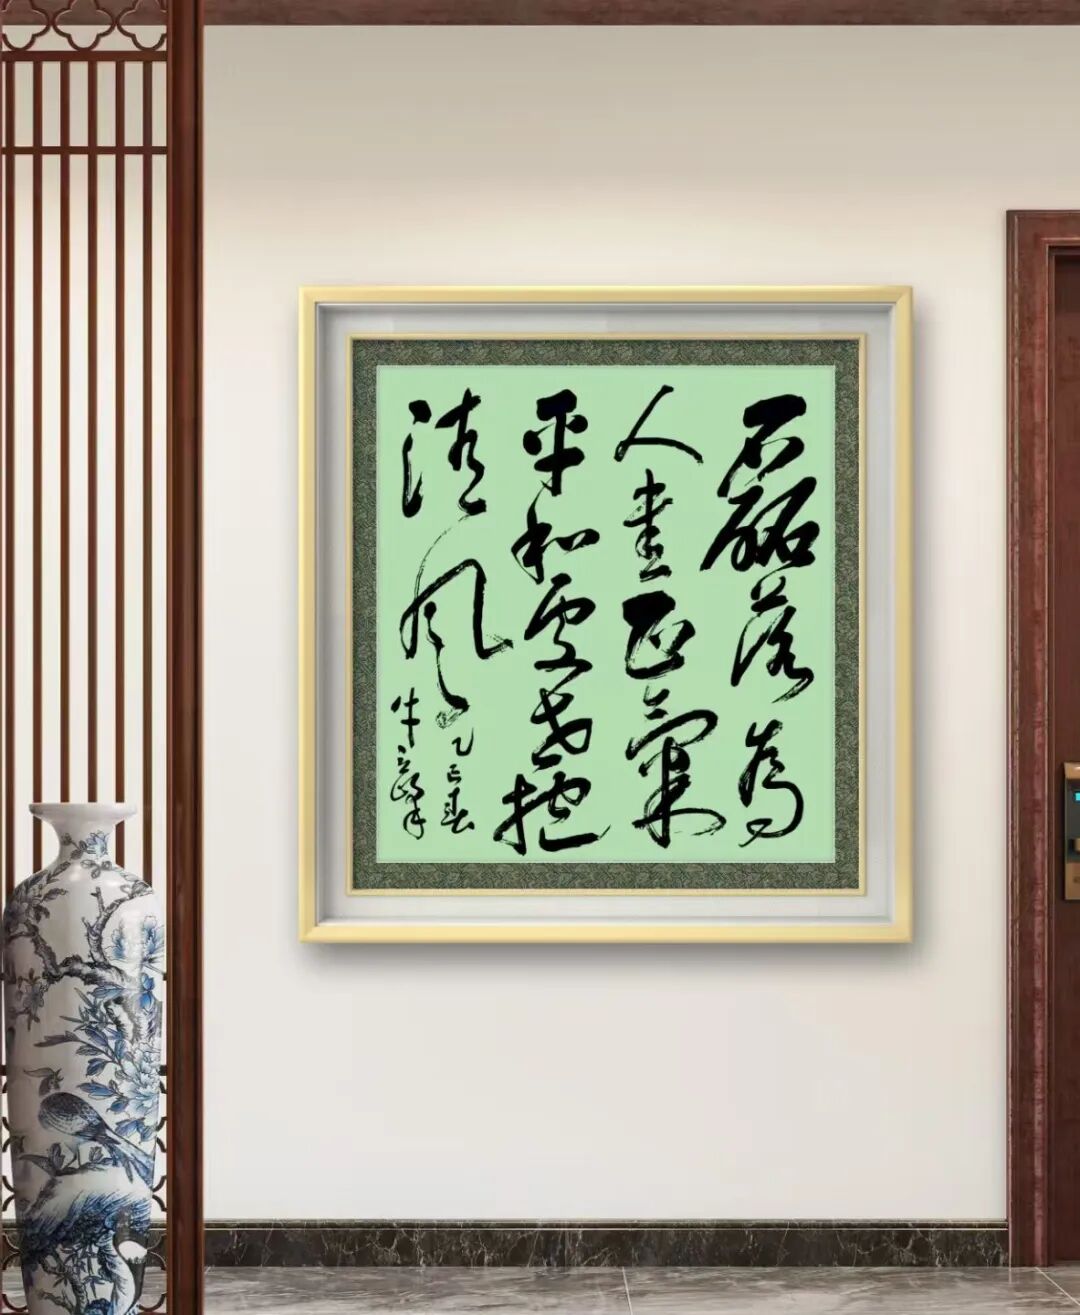 磊落為
人書正氣
平和處世抱
清風
乙巳春
牛立峰